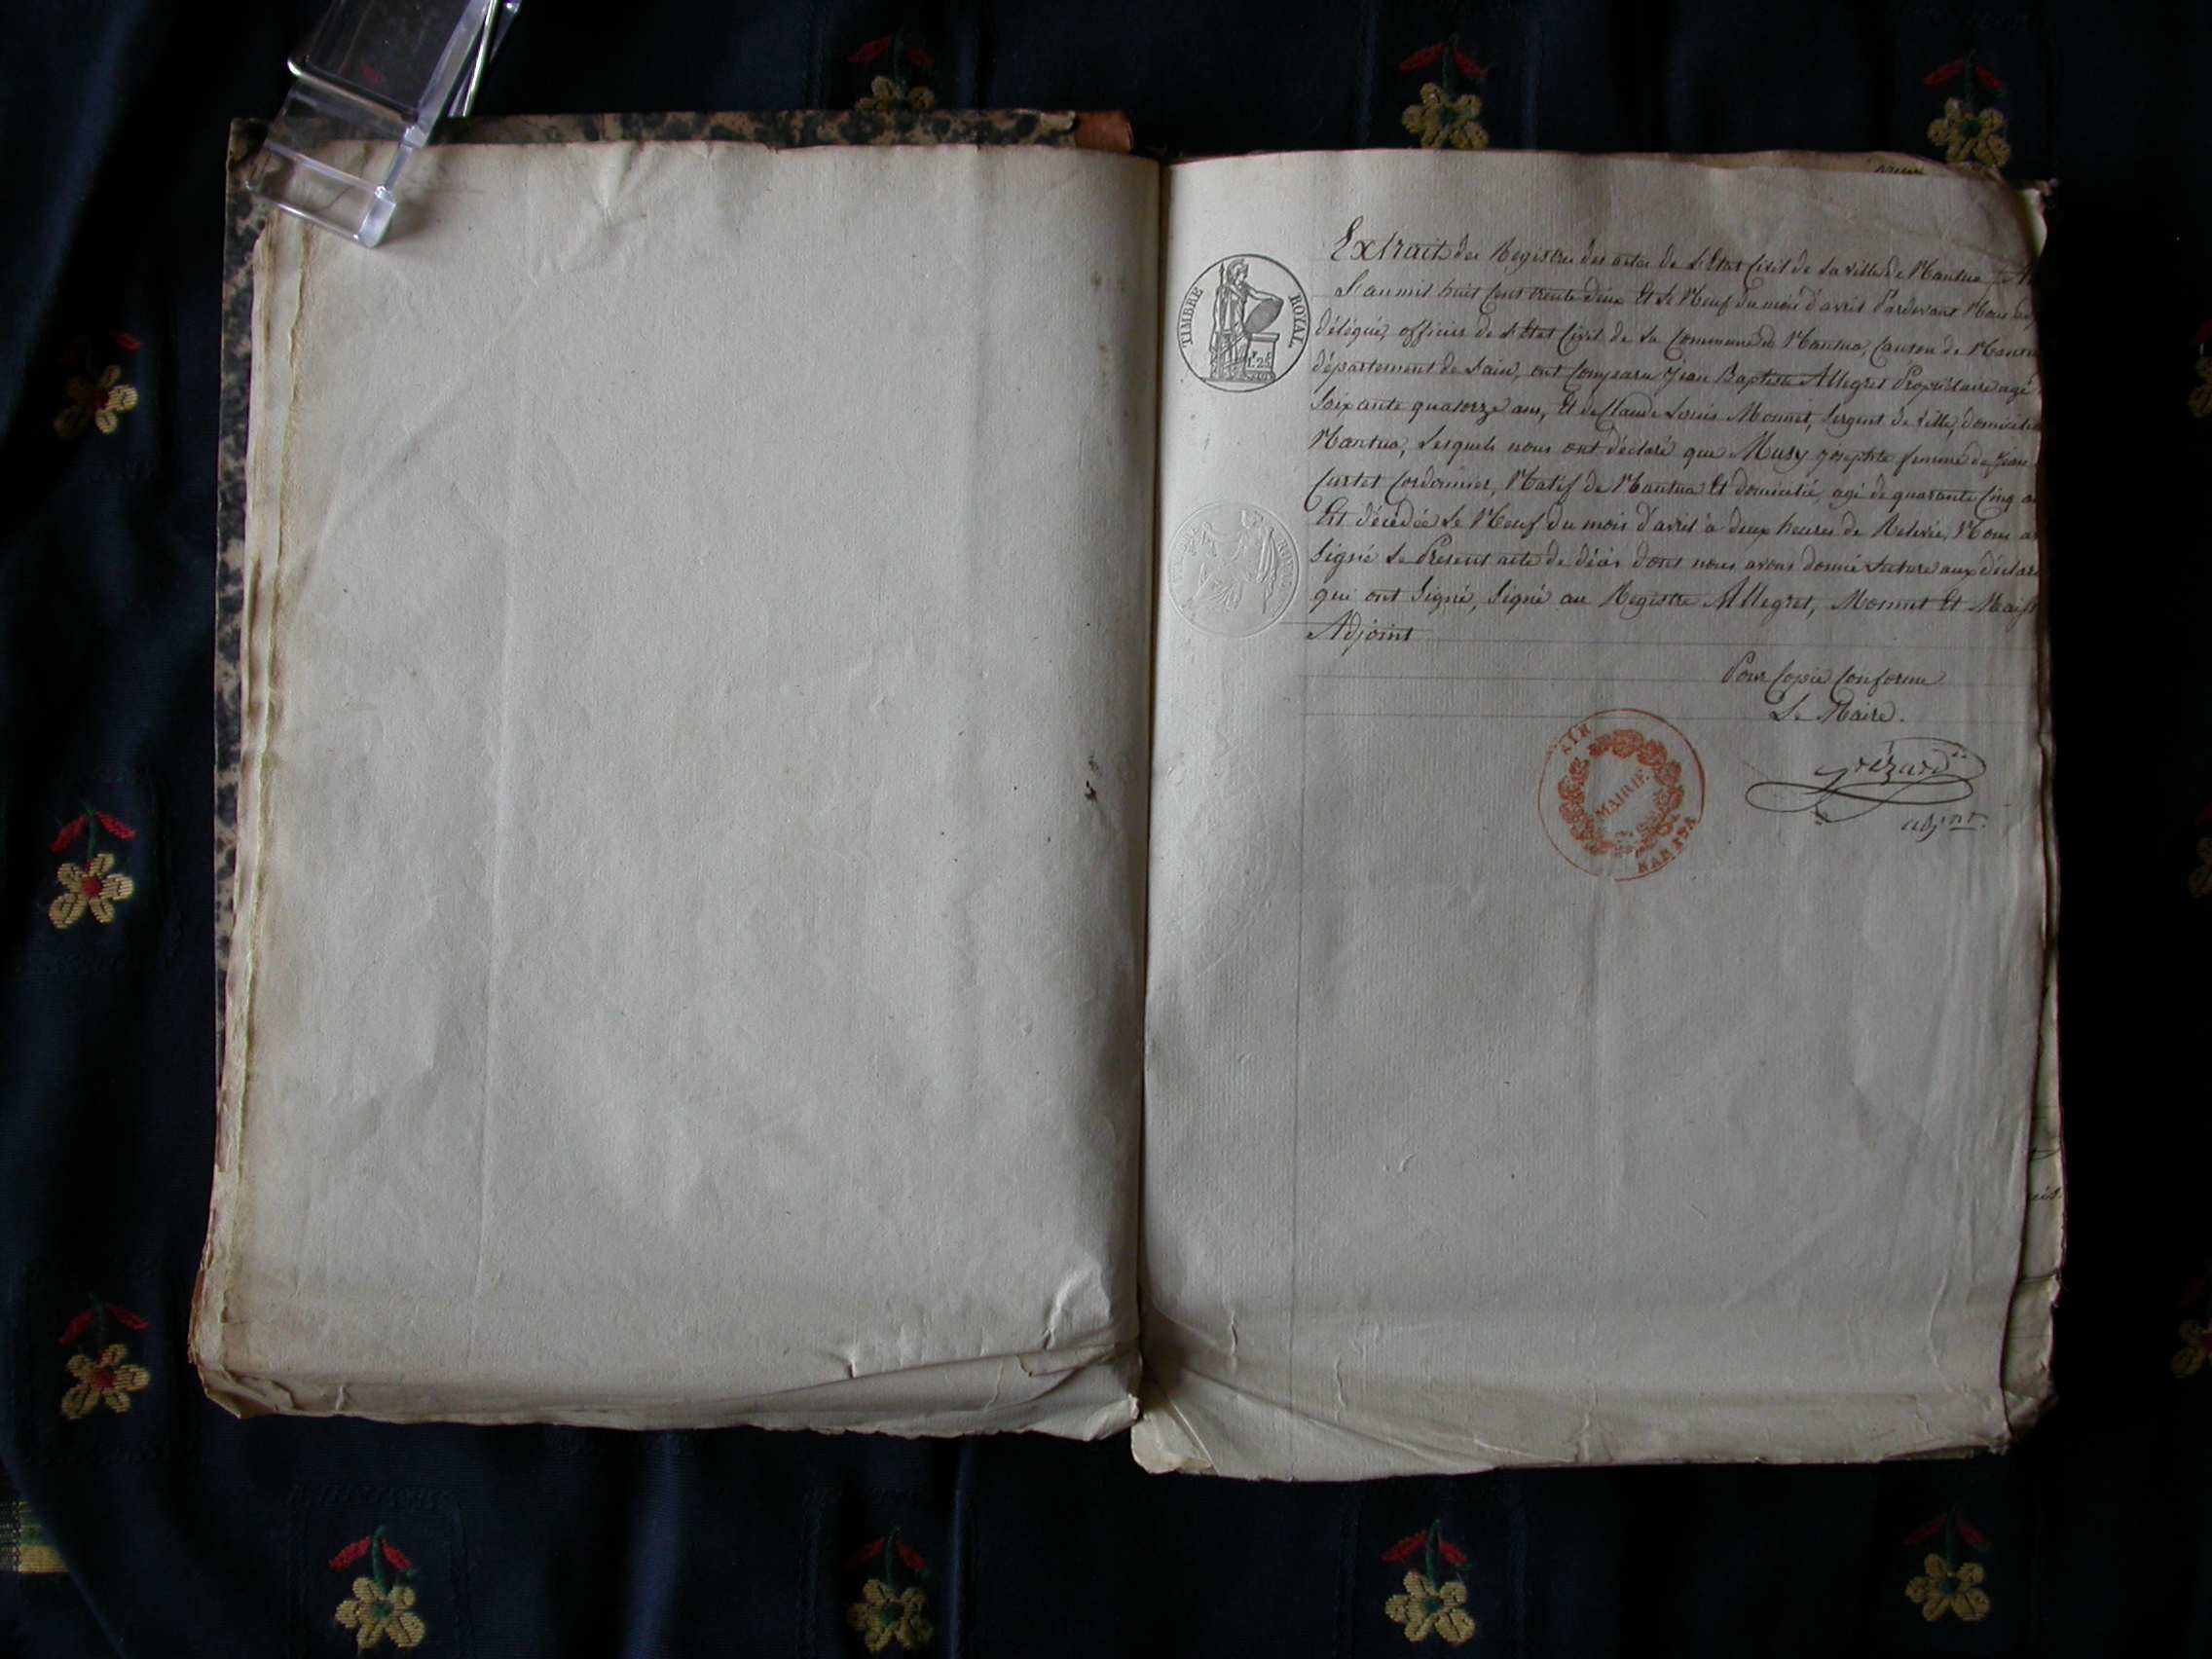 Extrait des Registres des actes de L'Etat Civil de La ville de Nantua
L'an mil huit cent trente deux Et Le Neuf du mois d'avril Pardevant Nous
délégué, officier de L'Etat Civil de La Commune de Nantua, Canton de Nantua
département de L'ain, ont Comparu Jean Baptiste Allegret Propriétaire agé
Soixante quatorze ans, Et de Claude Louis Monnet, Sergent de Ville, domicilié
Nantua, Lesquels nous ont déclaré que Musy Josephte femme de Jean
Curtet Cordonnier, Natif de Nantua Et domicilié, agé de quarante Cinq a
Est décédée Le Neuf du mois d'avril à deux heures de Relevée, Nous a
Signé Le Présent acte de décès dont nous avons donné Lecture aux déclar
qui ont Signé, Signé au Registre Allegret, Monnet Et
Adjoint
Pour Copie Conforme
Le Maire.
adjnt.
TIMBRE ROYAL
1.25
ROYAL
AIN
MAIRIE
NANTUA